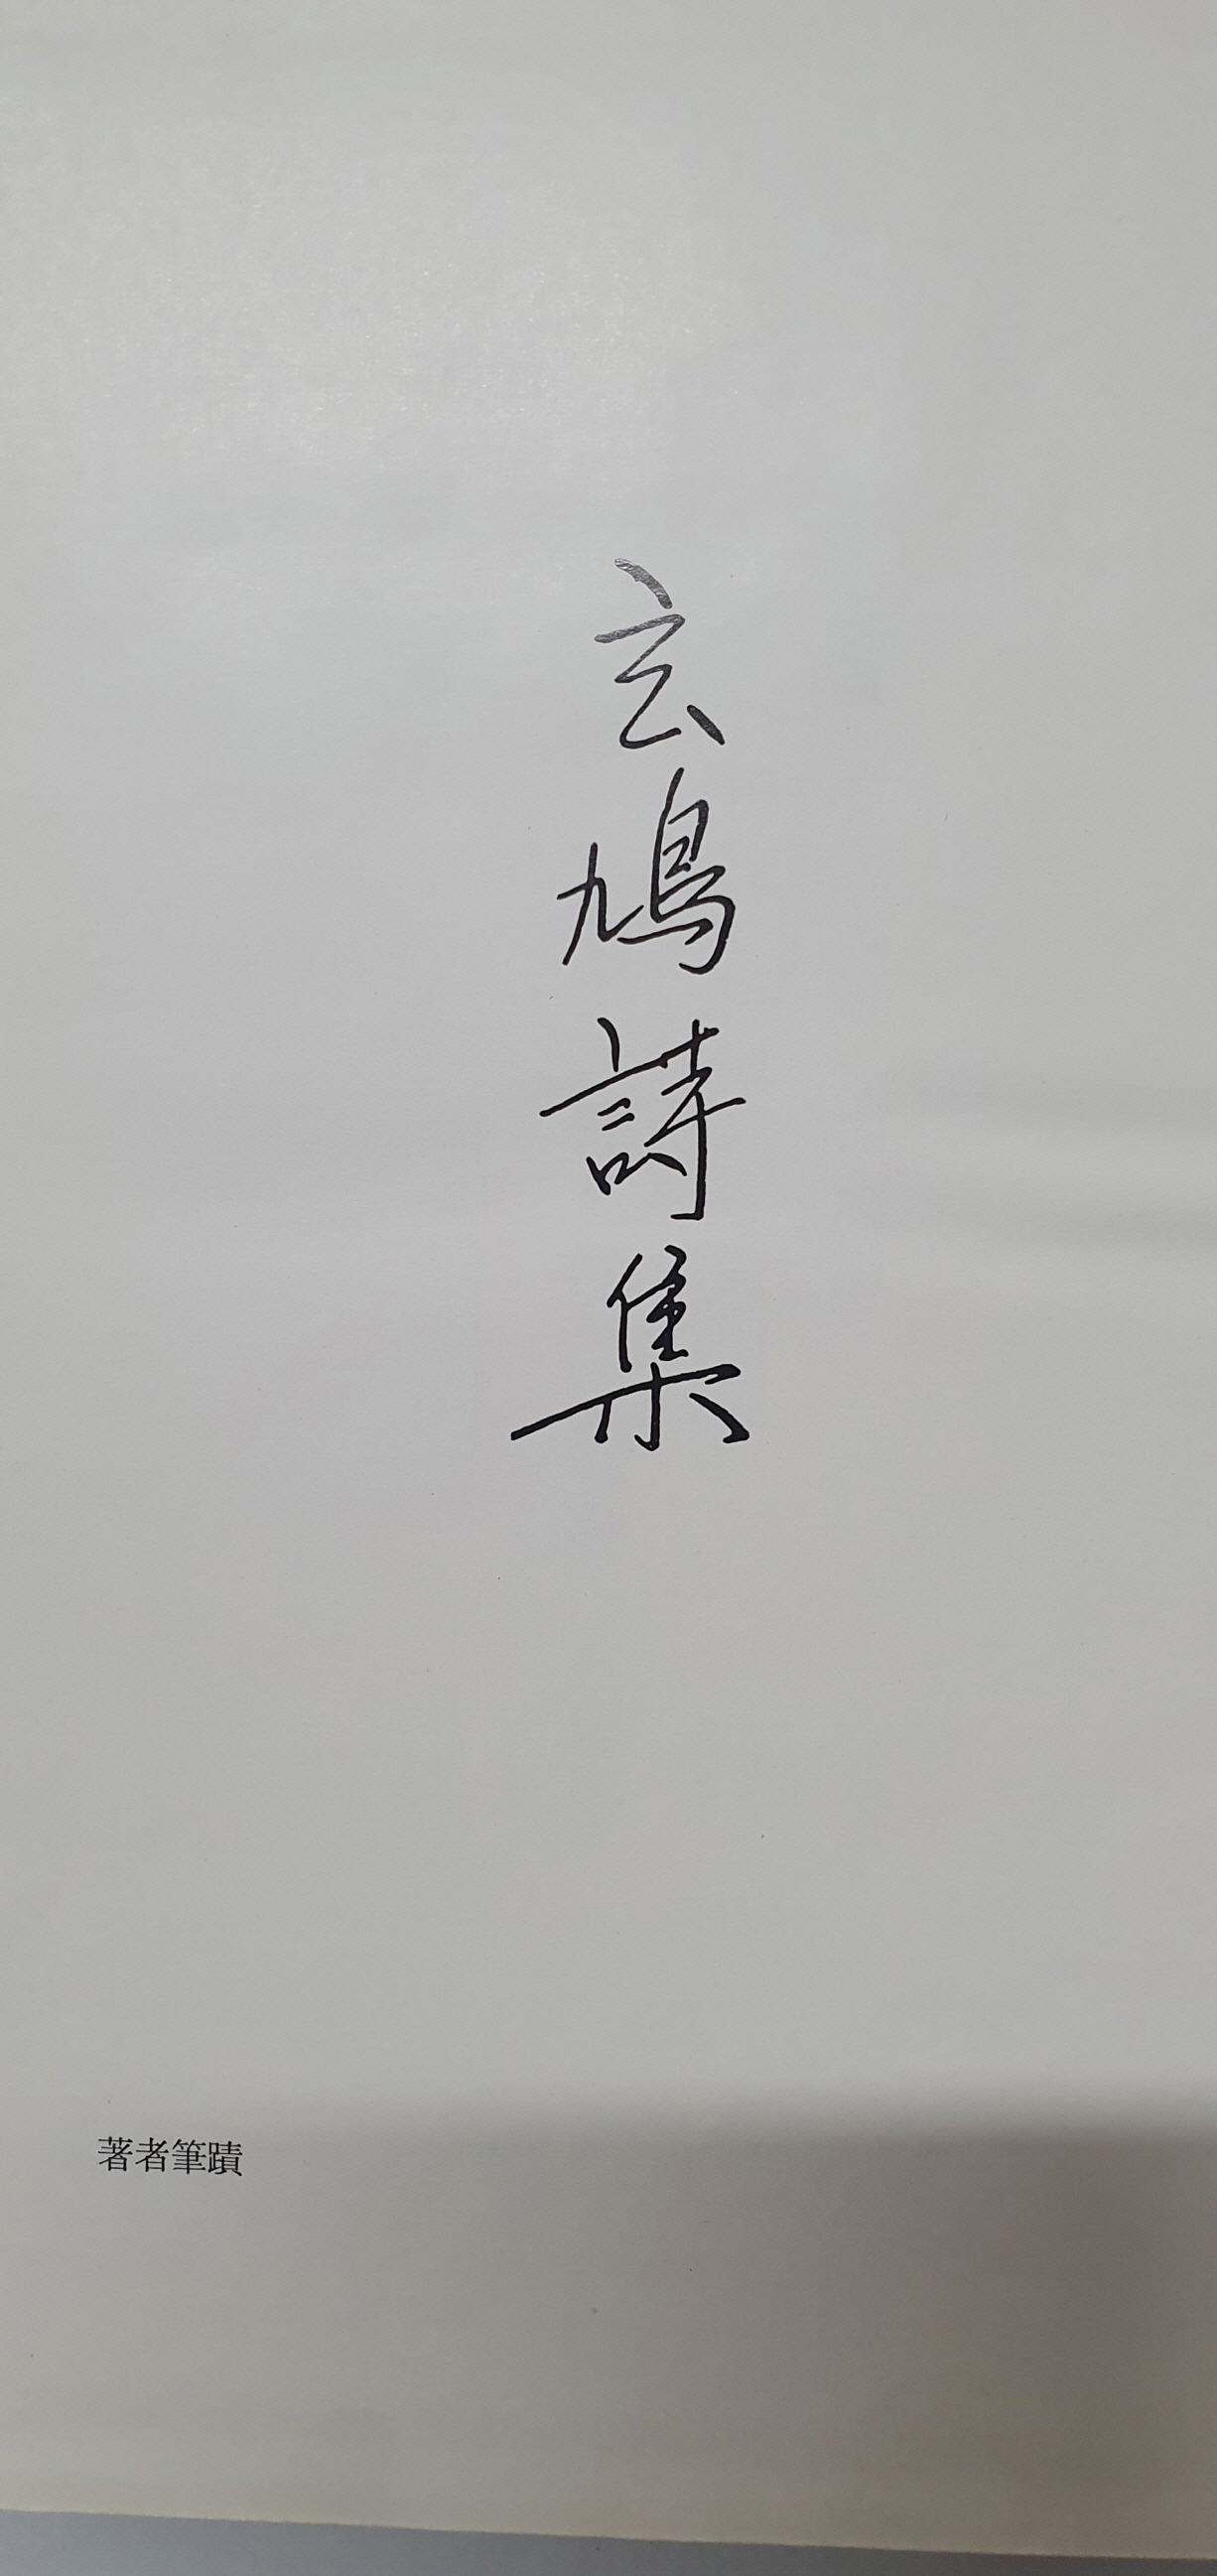 玄鳩詩集
著者筆蹟